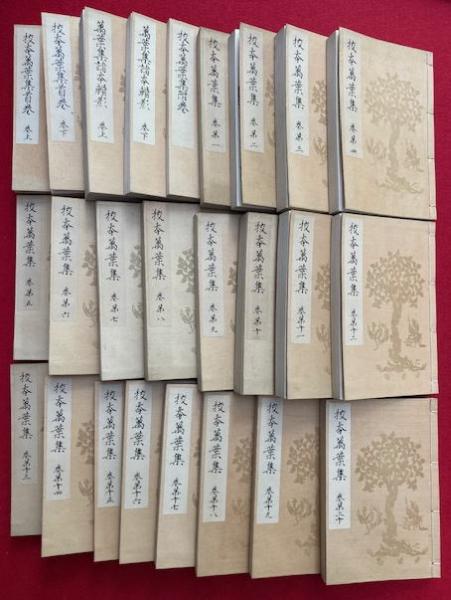 校本萬葉集首巻 巻上
校本萬葉集首巻 巻下
萬葉集諸本輯影 巻上
萬葉集諸本輯影 巻下
校本萬葉集附巻
校本萬葉集 巻第一
校本萬葉集 巻第二
校本萬葉集 巻第三
校本萬葉集 巻第四
校本萬葉集 巻第五
校本萬葉集 巻第六
校本萬葉集 巻第七
校本萬葉集 巻第八
校本萬葉集 巻第九
校本萬葉集 巻第十
校本萬葉集 巻第十一
校本萬葉集 巻第十二
校本萬葉集 巻第十三
校本萬葉集 巻第十四
校本萬葉集 巻第十五
校本萬葉集 巻第十六
校本萬葉集 巻第十七
校本萬葉集 巻第十八
校本萬葉集 巻第十九
校本萬葉集 巻第二十